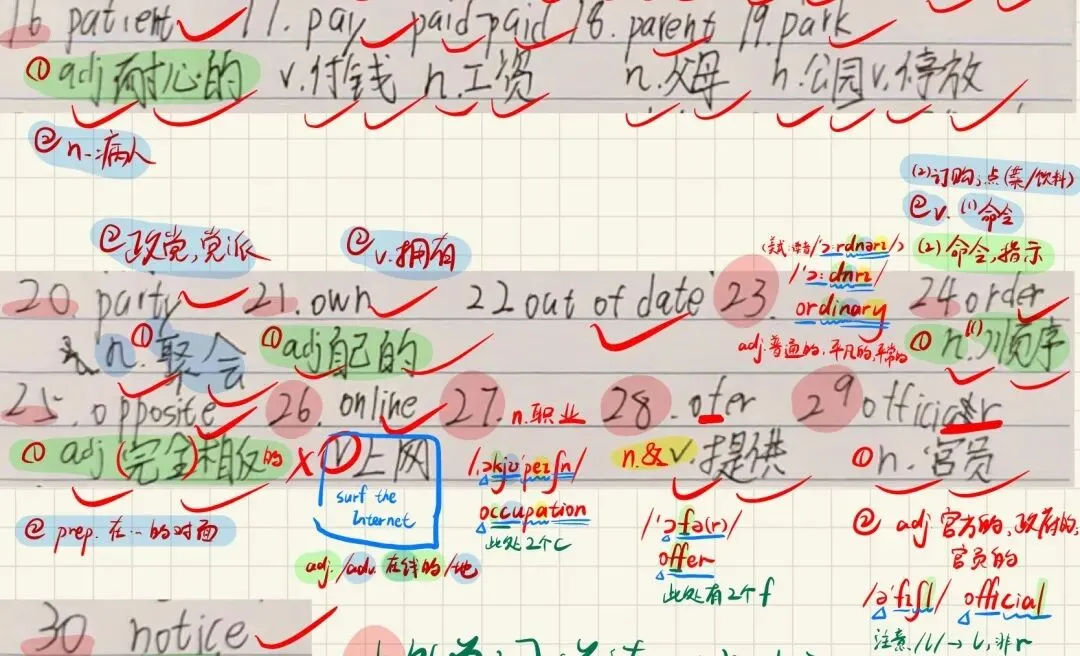 16 patient 17. pay paid paid 18. parent 19. park
① adj 耐心的 v.付钱 n.工资 n.父母 n.公园 v.停放
② n.病人
(2)订购,点(菜/饮料)
② v. (1)命令
② 政党,党派 ② v.拥有 (2)命令,指示
(美式读音/'ɔːrdnərɪ/)
/'ɔːdnrɪ/
20. party 21. own 22 out of date 23. ordinary 24 order
adj.普通的,平凡的,平常的
① n.聚会 ① adj自己的 ① n.(1)顺序
25. opposite 26. online 27. n.职业 28. ofer 29 official
① adj (完全)相反的 × v上网 n.&v.提供 ① n.官员
surf the
Internet
/ˌɒkjʊ'peɪʃn/
occupation
此处2个c
② prep.在…的对面
adj./adv.在线的/地
/'ɒfə(r)/
offer
此处有2个f
② adj 官方的,政府的,
官员的
/ə'fɪʃl/ official
注意/l/→l,非r
30 notice